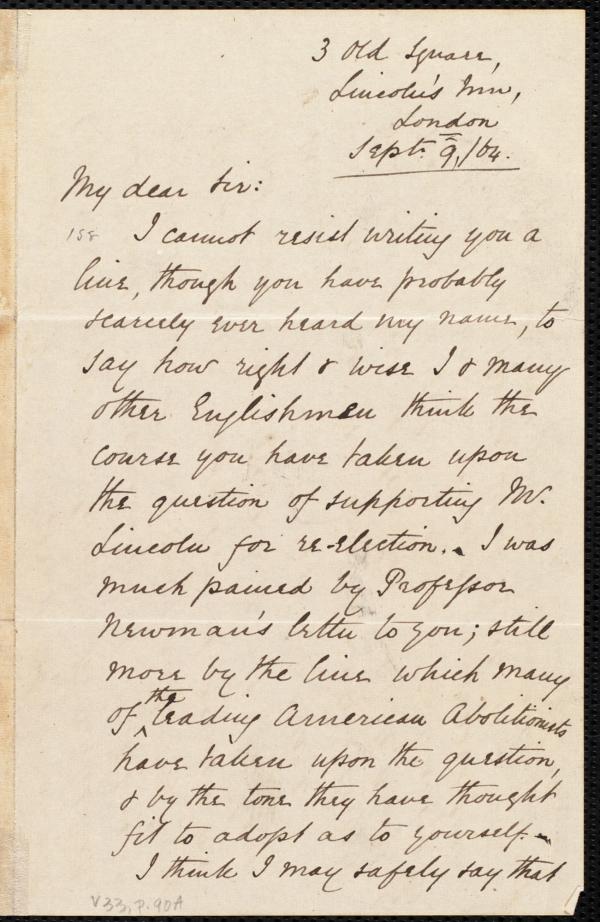 3 Old Square,
Lincoln's Inn,
London
Sept. 9,/64.
My dear Sir:
158 I cannot resist writing you a
line, though you have probably
scarcely ever heard my name, to
say how right & wise I & many
other Englishmen think the
course you have taken upon
the question of supporting Mr.
Lincoln for re-election. I was
much pained by Professor
Newman's letter to you; still
more by the line which many
of the leading American Abolitionists
have taken upon the question,
& by the tone they have thought
fit to adopt as to yourself.
I think I may safely say that
V33, P.90A